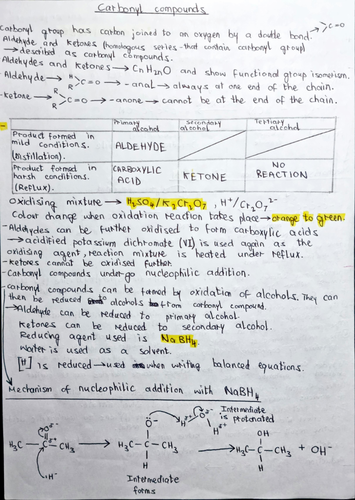 Carbonyl compounds
Carbonyl group has carbon joined to an oxygen by a double bond. >C=O
Aldehyde and Ketones (homologous series that contain carbonyl group)
→ described as carbonyl compounds.
Aldehydes and Ketones → CnH2nO and show functional group isomerism.
- Aldehyde → R H C=O → -anal → always at one end of the chain.
- Ketone → R R C=O → -anone → cannot be at the end of the chain.
Primary alcohol Secondary alcohol Tertiary alcohol
Product formed in mild conditions. (Distillation). ALDEHYDE
Product formed in harsh conditions. (Reflux). CARBOXYLIC ACID KETONE NO REACTION
Oxidising mixture → H2SO4/K2Cr2O7, H+/Cr2O7 2-
Colour change when oxidation reaction takes place → orange to green.
- Aldehydes can be further oxidised to form carboxylic acids
→ acidified potassium dichromate (VI) is used again as the
oxidising agent, reaction mixture is heated under reflux.
- Ketones cannot be oxidised further.
- Carbonyl compounds undergo nucleophilic addition.
- Carbonyl compounds can be formed by oxidation of alcohols. They can
then be reduced to alcohols from carbonyl compound.
→ Aldehyde can be reduced to primary alcohol.
Ketones can be reduced to secondary alcohol.
Reducing agent used is NaBH4.
Water is used as a solvent.
[H] is reduced → used when writing balanced equations.
Mechanism of nucleophilic addition with NaBH4
Intermediate is protonated
H3C-C-CH3 → H3C-C-CH3 → H3C-C-CH3 + OH-
:H-
Intermediate
forms